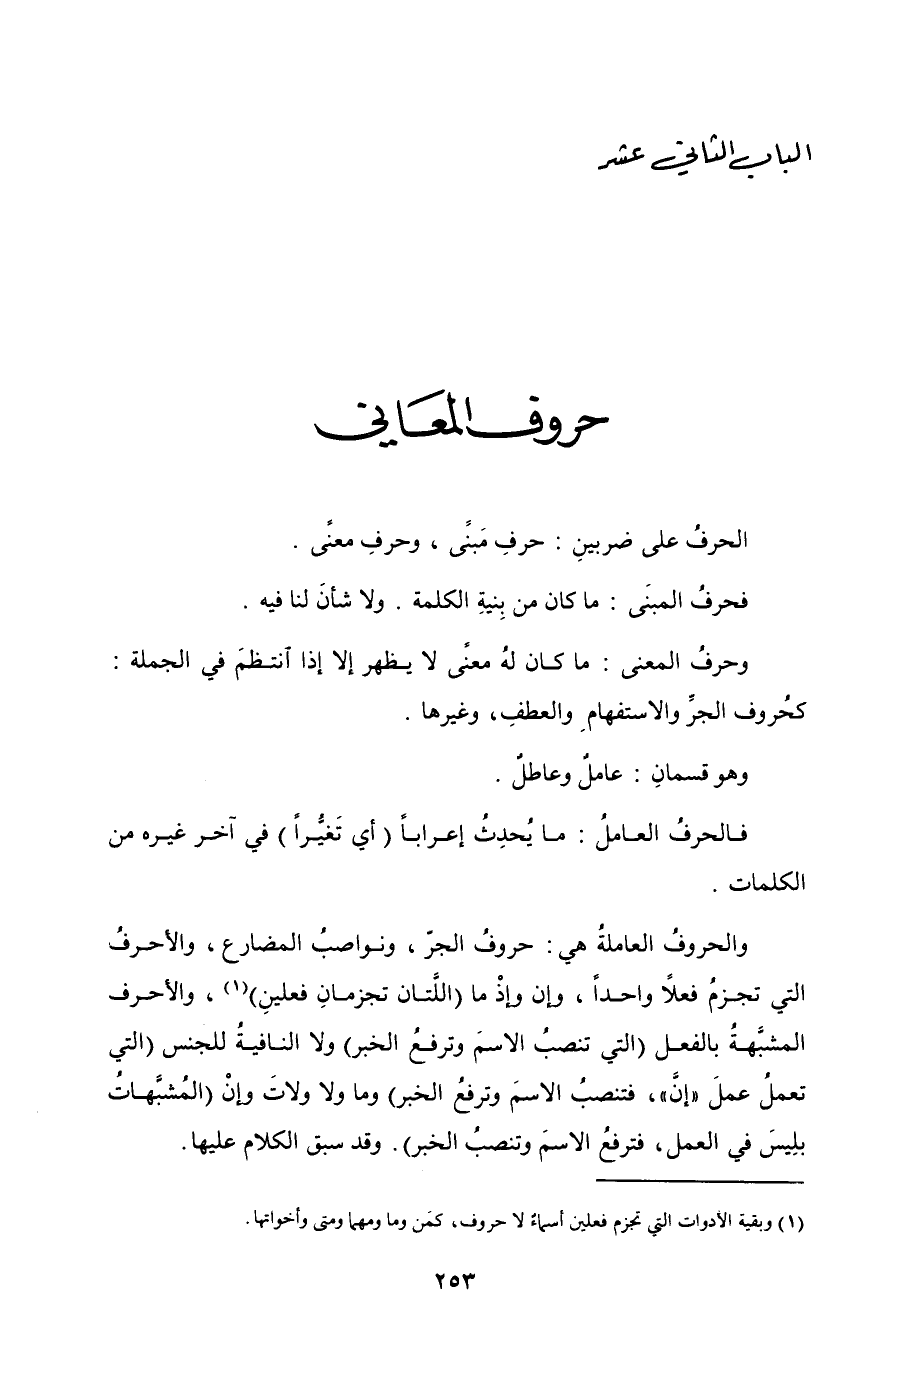 الباب الثاني عشر
حروف المعَاني
الحرفُ على ضربينِ : حرفِ مَبنًّى ، وحرفِ معنًّى .
فحرفُ المبنَى : ما كان من بِنيةِ الكلمة . ولا شأنَ لنا فيه .
وحرفُ المعنى : ما كـان لهُ معنًّى لا يـظهر إلا إذا ٱنتـظمَ في الجملة :
كحُروف الجرِّ والاستفهامِ والعطفِ، وغيرها .
وهو قسمانِ : عاملٌ وعاطلٌ .
فـالحرفُ العـاملُ : مـا يُحدِثُ إعـرابـاً ( أي تَغيُّـراً ) في آخـر غيـره من
الكلمات .
والحروفُ العاملةُ هي : حروفُ الجرّ ، ونـواصبُ المضارع ، والأحـرفُ
التي تجـزمُ فعلاً واحـداً ، وإن وإذْ ما (اللَّتـان تجزمـانِ فعلينِ)(١) ، والأحـرف
المشبَّهـةُ بالفعـل (التي تنصبُ الاسمَ وترفـعُ الخبر) ولا النـافيـةُ للجنس (التي
تعملُ عملَ «إنَّ»، فتنصبُ الاسمَ وترفعُ الخبر) وما ولا ولاتَ وإنْ (المُشبَّهـاتُ
بلِيسَ في العمل، فترفعُ الاسمَ وتنصبُ الخبر). وقد سبق الكلام عليها.
(١) وبقية الأدوات التي تجزم فعلين أسماءٌ لا حروف، كمَن وما ومهما ومتى وأخواتها.
٢٥٣